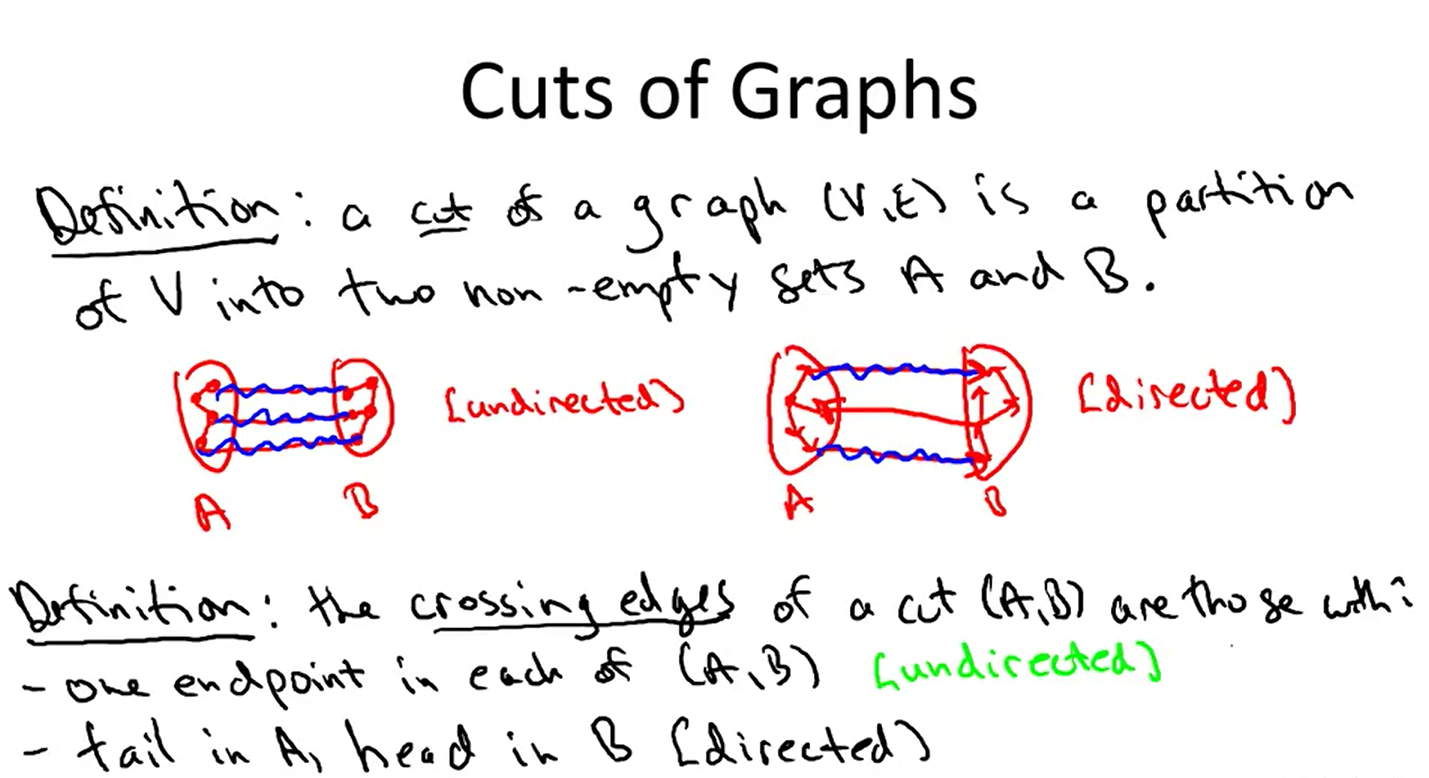 Cuts of Graphs
Definition: a cut of a graph (V,E) is a partition
of V into two non-empty sets A and B.
[undirected] [directed]
A B A B
Definition: the crossing edges of a cut (A,B) are those with:
- one endpoint in each of (A,B) [undirected]
- tail in A, head in B [directed]